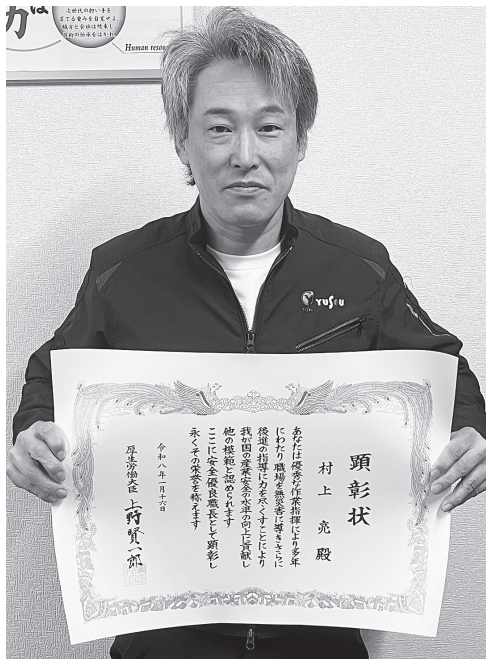 は
力
次世代の担い手を
育てる重みを自覚せよ。
Human resou
YUSEU
顕彰状
村上亮殿
あなたは優秀な作業指揮により多年
にわたり職場を無災害に導きさらに
後進の指導に力を尽くすことにより
我が国の産業安全の水準の向上に貢献し
他の模範と認められます
ここに安全優良職長として顕彰し
永くその栄誉を称えます
令和八年一月十六日
厚生労働大臣 上野賢一郎